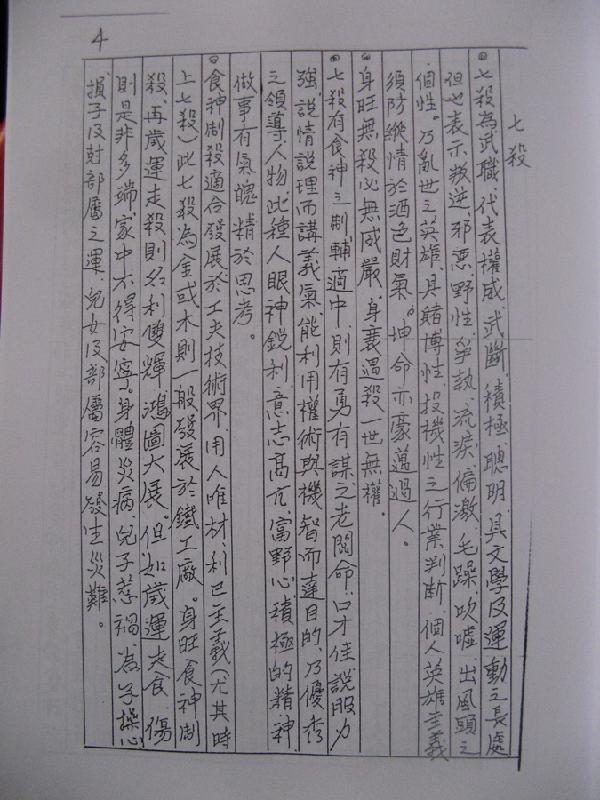 4
七殺
七殺為武職、代表權威、武斷、積極、聰明、具文學及運動之長處
但也表示叛逆、邪惡、野性、爭執、流浪、偏激、毛躁、吹噓、出風頭之
個性。乃亂世之英雄、具賭博性、投機性之行業判斷、個人英雄主義
須防縱情於酒色財氣。坤命亦豪邁過人。
身旺無殺必無威嚴、身衰遇殺一世無權。
七殺有食神之制、輔適中、則有勇有謀之老闆命、口才佳說服力
強、說情說理而講義氣、能利用權術與機智而達目的、乃優秀
之領導人物、此種人眼神銳利、意志高亢、富野心、積極的精神
做事有氣魄、精於思考。
食神制殺適合發展於工夫技術界、用人唯材、利己主義(尤其時
上七殺)此七殺為金或木則一般發展於鐵工廠。身旺食神制
殺、再歲運走殺則名利雙輝、鴻圖大展、但如歲運走食、傷
則是非多端、家中不得安寧。身體災病、兒子惹禍、為子操心
損子及財部屬之運、兒女及部屬容易發生災難。